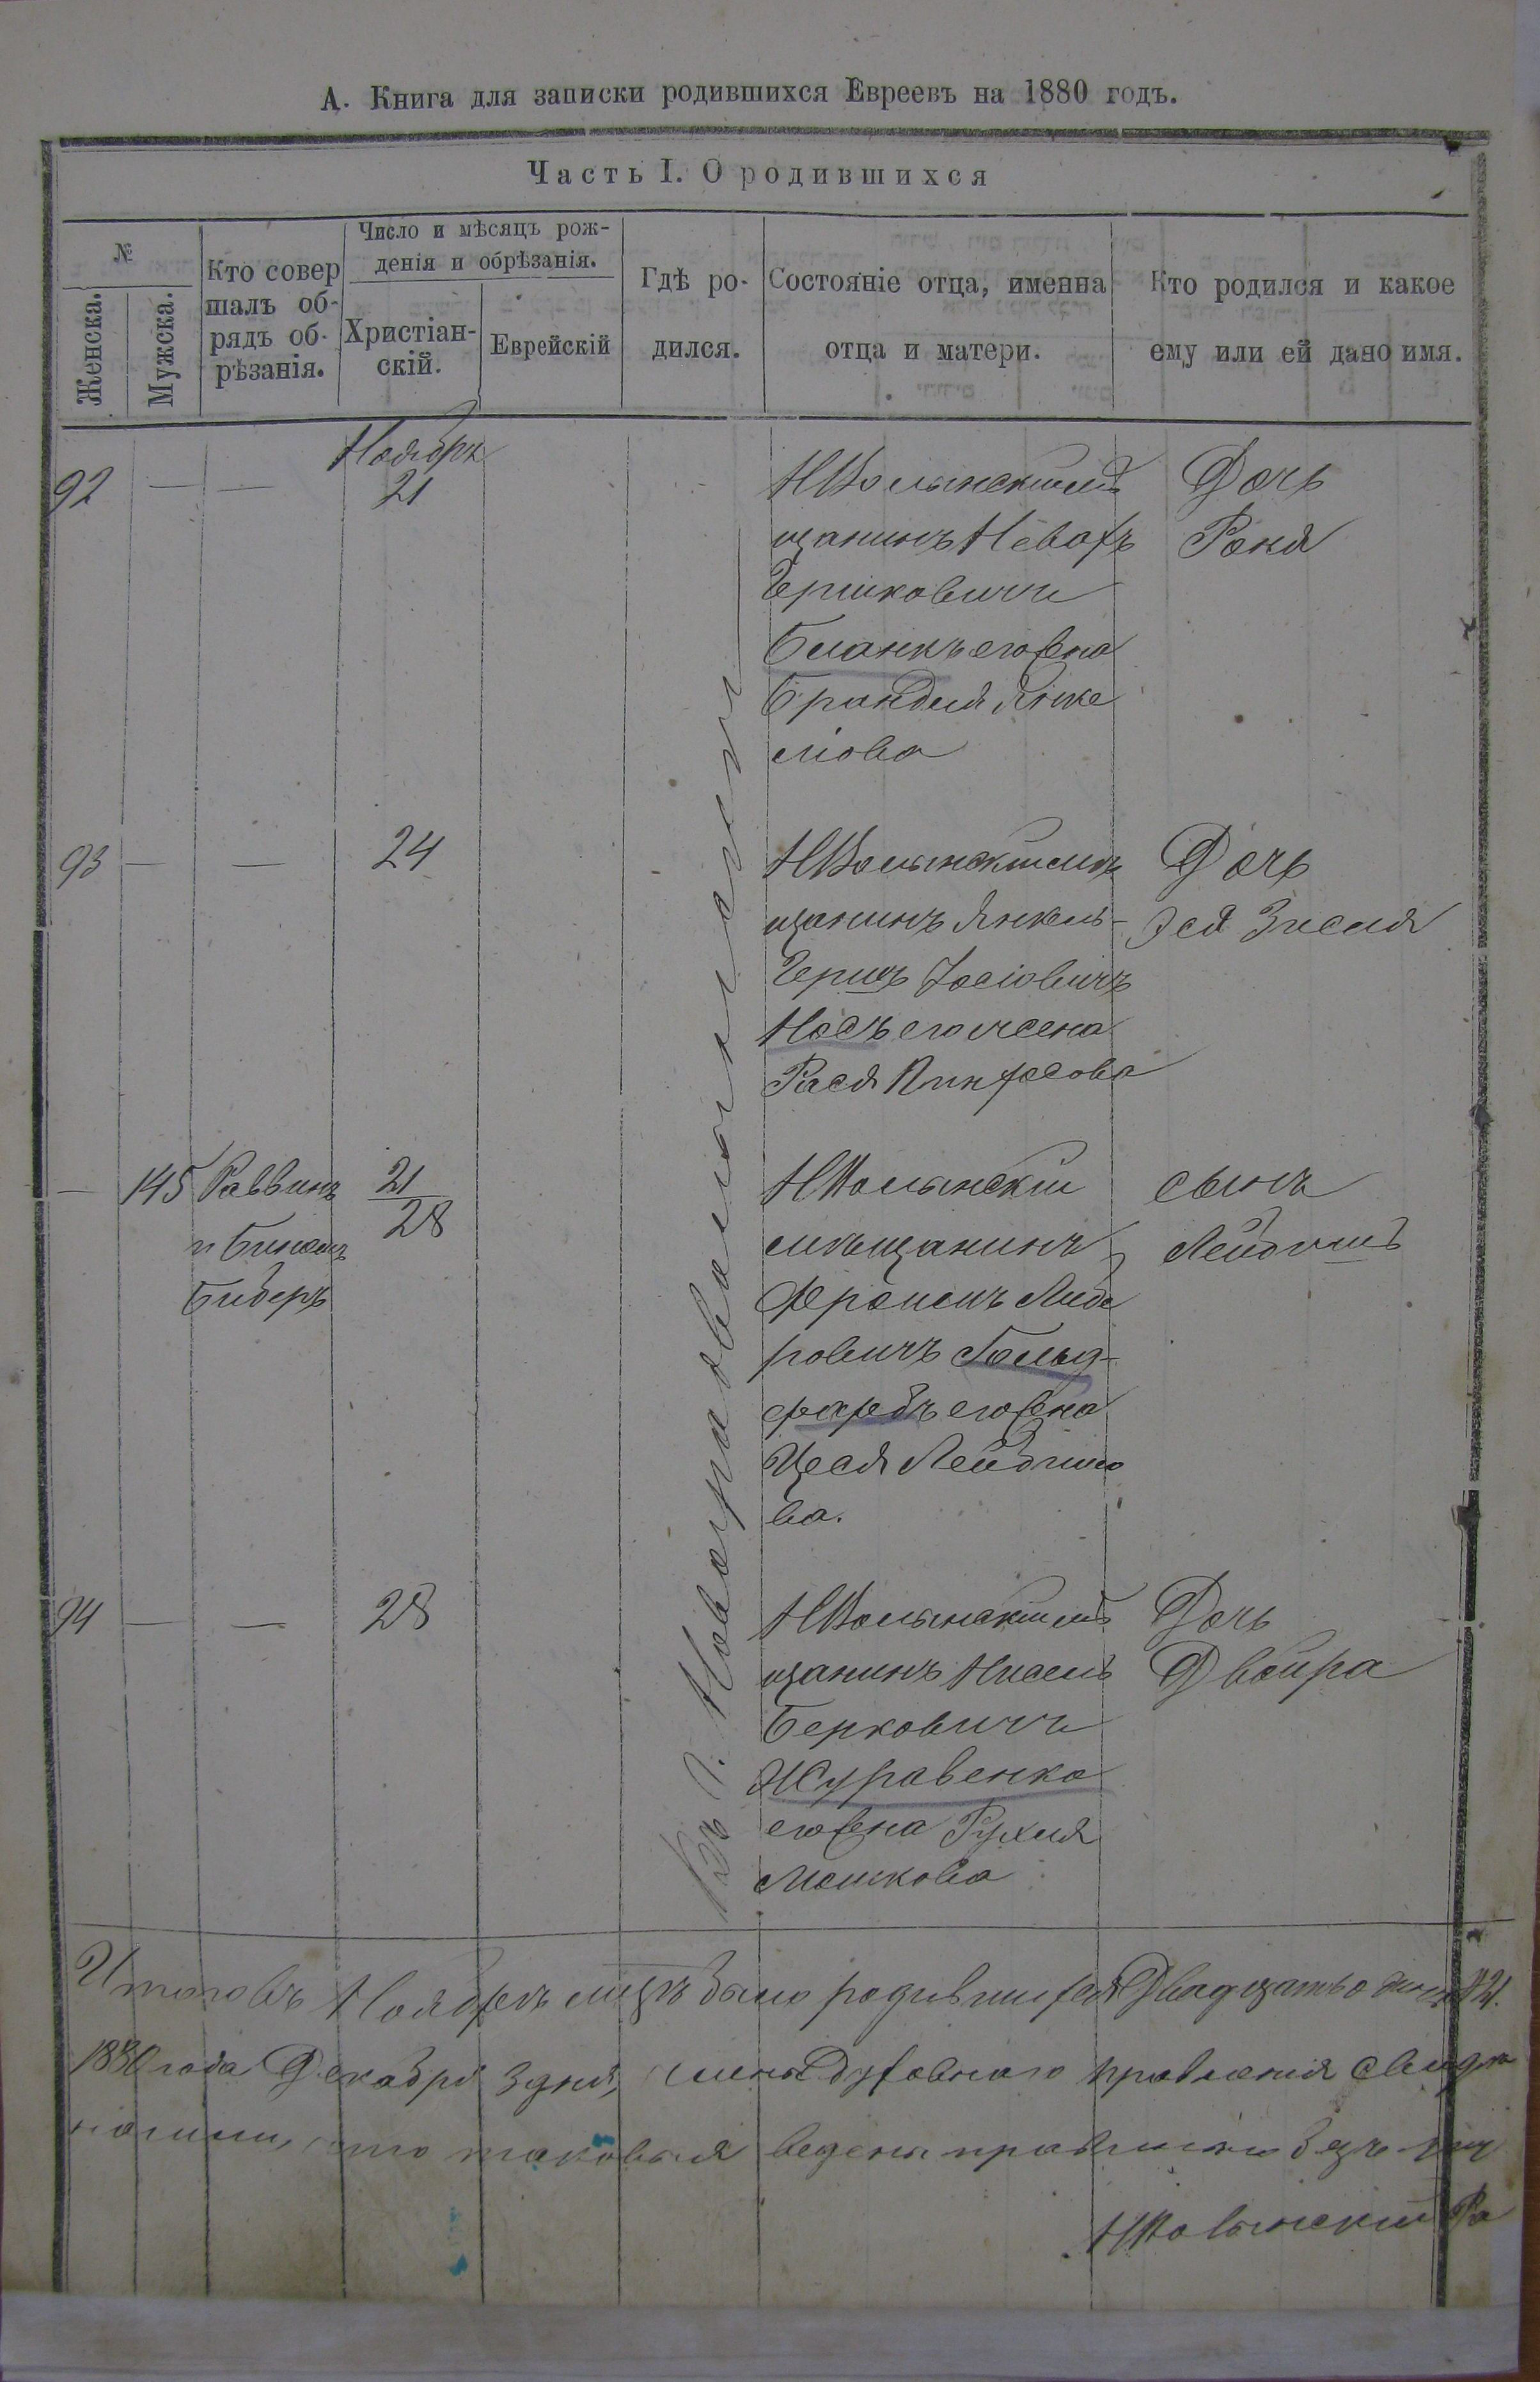 А. Книга для записки родившихся Евреевъ на 1880 годъ.
Часть I. О родившихся
№
Женска.
Мужска.
Кто совер
шалъ об-
рядъ об-
рѣзанія.
Число и мѣсяцъ рож-
денія и обрѣзанія.
Христіан-
скій.
Еврейскій
Гдѣ ро-
дился.
Состояніе отца, именна
отца и матери.
Кто родился и какое
ему или ей дано имя.
Въ г. Новоградволынскѣ
92 — — Ноябрь
21
НВолынскій мѣ
щанинъ Невахъ
Гершковичъ
Бланкъ его жена
Брандля Янке
лiова
Дочь
Рокля
93 — — 24
НВолынскій мѣ
щанинъ Янкель-
Гершъ Іосіовичъ
Носъ его жена
Рася Пинхасова
Дочь
Эся Зисля
— 145 Раввинъ
и Бинемъ
Биберъ
21
28
НВолынскій
мѣщанинъ
Фроимъ Лейбе
ровичъ Гольд-
фарбъ его жена
Цеся Лейбишо
ва.
сынъ
Лейбишъ
94 — — 28
НВолынскій мѣ
щанинъ Нисель
Берковичъ
Журавенко
его жена Рухля
Мошкова
Дочь
Двойра
Итого въ Ноябрѣ мцѣ было родившихся Двадцать о 21.
1880 года Декабря 3 дня, члены Духовнаго правленія свидѣ
что таковыя ведены правильно безъ
НВолынскій Ра